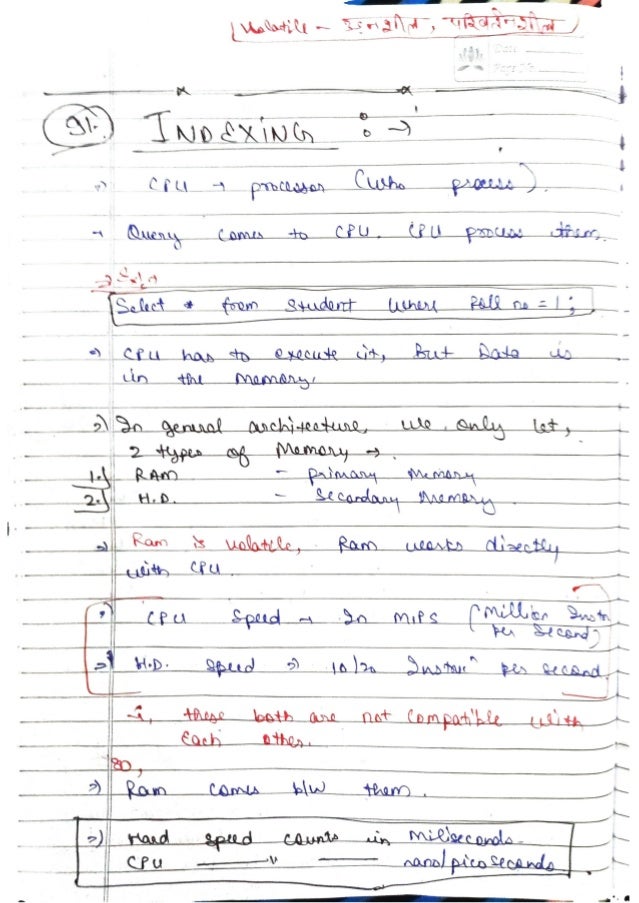 Volatile - उड़नशील, परिवर्तनशील
Date
Page No.
91. INDEXING :→
CPU → processor (who process).
→ Query comes to CPU. CPU process them.
Select * from Student where Roll no = 1;
⇒ CPU has to execute it, But Data is
in the memory.
⇒ In general architecture, we only let,
2 types of Memory →
1. RAM - primary memory
2. H.D. - Secondary memory
⇒ Ram is volatile, Ram works directly
with CPU.
⇒ CPU Speed → In MIPS (Million Instn
per Second)
⇒ H.D. Speed ⇒ 10/20 Instrucn per second
these both are not compatible with
each other.
SO,
⇒ Ram comes b/w them.
⇒ Hard speed counts in miliseconds.
CPU —— " —— nano/pico seconds.